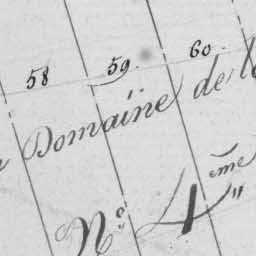 58 59. 60.
Domaïne de l
Nº 4eme "